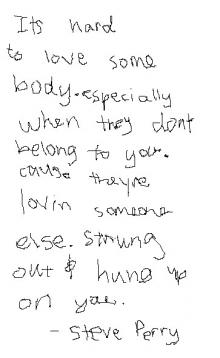 Its hard
to love some
body. especially
when they dont
belong to you.
cause theyre
lovin someone
else. strung
out & hung up
on you.
- Steve Perry